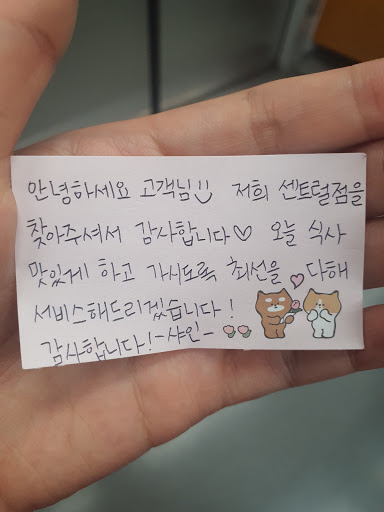 안녕하세요 고객님 :) 저희 센트럴점을
찾아주셔서 감사합니다♡ 오늘 식사
맛있게 하고 가시도록 최선을 다해
서비스해드리겠습니다!
감사합니다! -샤인-